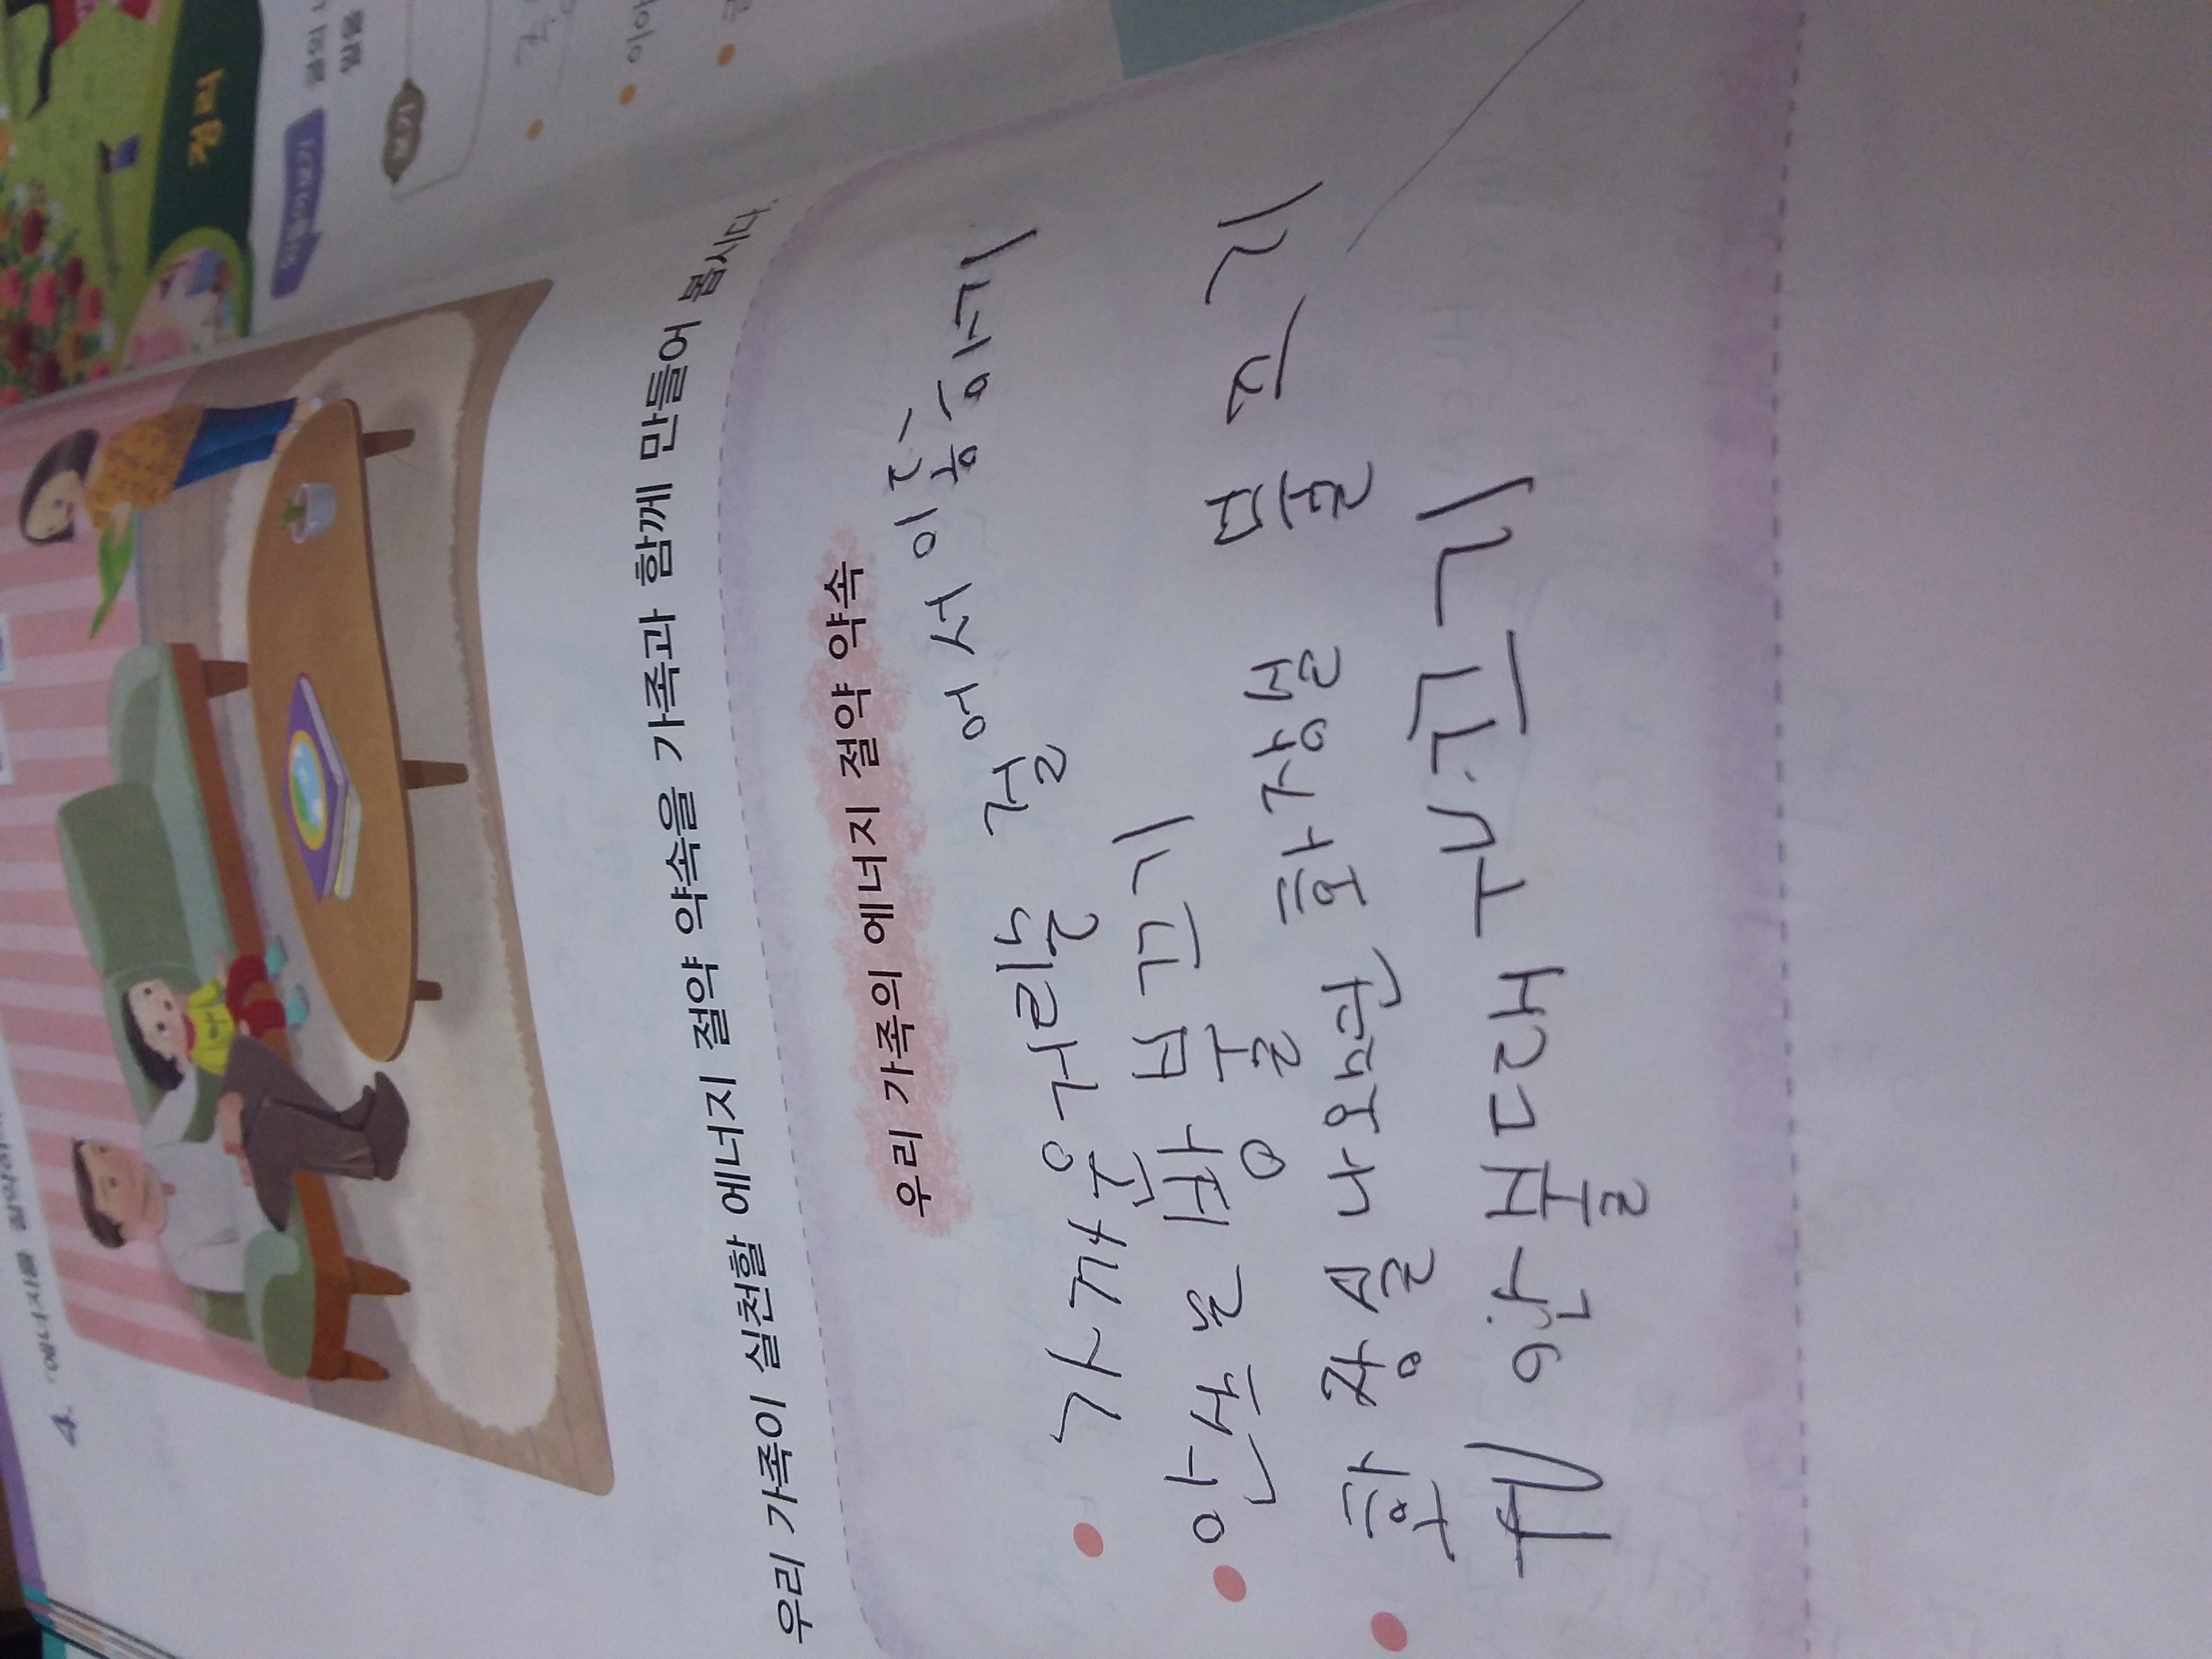 4. 에너지를 절약하
우리 가족이 실천할 에너지 절약 약속을 가족과 함께 만들어 봅시다.
우리 가족의 에너지 절약 약속
가까운거리는 절에서 이동하기
안쓰는 방 불끄기
화장실나오면 화장실 물끄기
TV 안볼때 TV끄기
정리
되돌아보기
글의
일을
보기
이야